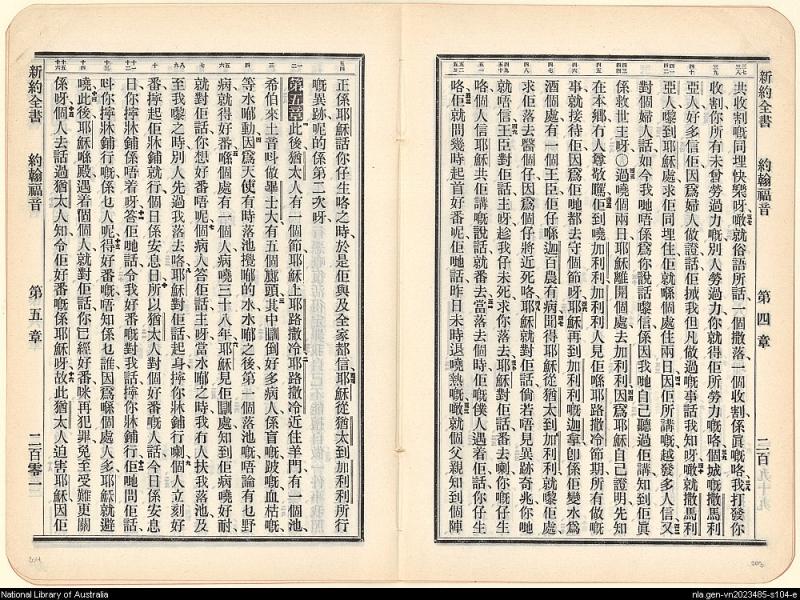 新約全書 約翰福音 第四章 二百九十九
共收割嘅同埋快樂呀噉就俗語所話一個撒落一個收割係眞嘅咯我打發你
收割你所有未曾勞過力嘅別人勞過力你就得佢所勞力嘅咯個城嘅撒馬利
亞人好多信佢因爲婦人做證話佢搣我但凡做過嘅事話我知呀噉就撒馬利
亞人嚟到耶穌處求佢同埋住佢就喺個處住兩日因佢所講嘅越發多人信又
對個婦人話如今我哋唔係爲你說話嚟信係因我哋自己聽過佢講知到佢眞
係救世主呀○過嘵個兩日耶穌離開個處去加利利因爲耶穌自己證明先知
在本鄉冇人尊敬佢到嘵加利利加利利人見佢喺耶路撒冷節期所有做嘅
事就接待佢因爲佢哋都去守個節呀耶穌再到加利利嘅迦拿卽係佢變水爲
酒個處有一個王臣佢仔喺迦百農有病聞得耶穌從猶太到加利利就嚟佢處
求佢落去醫個仔因爲個仔將近死咯耶穌就對佢話倘若唔見異跡奇兆你哋
就唔信王臣對佢話主呀趁我仔未死求你落去耶穌對佢話番去喇你嘅仔生
咯個人信耶穌共佢講嘅說話就番去當落去個時佢嘅僕人遇着佢話佢仔生
咯佢就問幾時起首好番呢佢哋話昨日未時退嘵熱嘅噉就個父親知到個陣
正係耶穌話你仔生咯之時於是佢與及全家都信耶穌從猶太到加利利所行
嘅異跡呢的係第二次呀
第五章此後猶太人有一個節耶穌上耶路撒冷耶路撒冷近住羊門有一個池
希伯來土音呌做畢士大有五個廊頭其中瞓倒好多病人係盲嘅跛嘅血枯嘅
等水郁動因爲天使有時落池攪郁的水水郁之後第一個落池嘅唔論有乜野
病就得好番喺個處有一個人病嘵三十八年耶穌見佢瞓處知到佢病嘵好耐
就對佢話你想好番唔呢個病人答佢話主呀當水郁之時我冇人扶我落池及
至我嚟之時別人先過我落去咯耶穌對佢話起身擰你牀鋪行喇個人立刻好
番擰起佢牀鋪就行個日係安息日所以猶太人對個好番嘅人話今日係安息
日你擰牀鋪係唔着呀答佢哋話令我好番嘅對我話擰你牀鋪行佢哋問佢話
呌你擰牀鋪行嘅係乜人呢得好番嘅唔知係乜誰因爲喺個處人多耶穌就避
嘵此後耶穌喺殿遇着個個人就對佢話你已經好番咪再犯罪免至受難更關
係呀個人去話過猶太人知令佢好番嘅係耶穌呀故此猶太人迫害耶穌因佢
新約全書 約翰福音 第五章 二百零一
National Library of Australia
nla.gen-vn2023485-s104-e